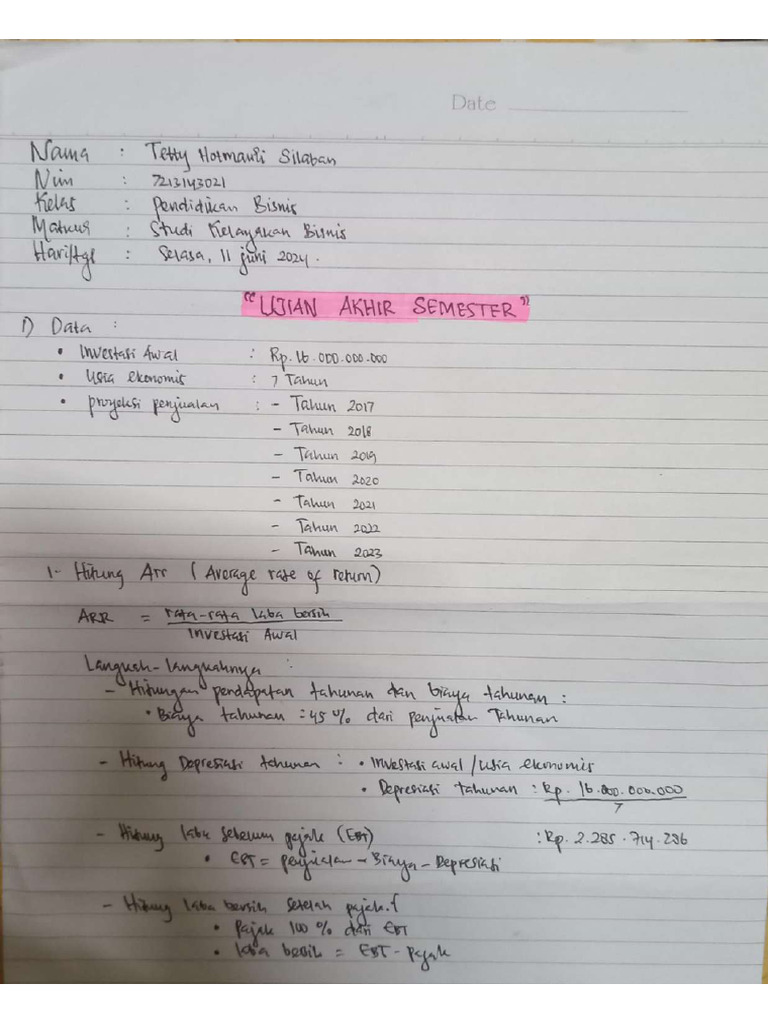 Date
Nama : Tetty Hotmauli Silaban
Nim : 7213143021
Kelas : Pendidikan Bisnis
Matkul : Studi Kelayakan Bisnis
Hari/tgl : Selasa, 11 juni 2024.
"UJIAN AKHIR SEMESTER"
1) Data :
• Investasi Awal : Rp. 16.000.000.000
• Usia ekonomis : 7 Tahun
• proyeksi penjualan : - Tahun 2017
- Tahun 2018
- Tahun 2019
- Tahun 2020
- Tahun 2021
- Tahun 2022
- Tahun 2023
1- Hitung Arr (Average rate of return)
ARR = rata-rata laba bersih
Investasi Awal
Langkah-langkahnya :
- Hitungan pendapatan tahunan dan biaya tahunan :
• Biaya tahunan : 45 % dari penjualan Tahunan
- Hitung Depresiasi tahunan : • Investasi awal / usia ekonomis
• Depresiasi tahunan : Rp. 16.000.000.000
7
- Hitung laba sebelum pajak (EBT) : Rp. 2.285.714.286
• EBT = penjualan - Biaya - Depresiasi
- Hitung laba bersih setelah pajak.
• Pajak 100 % dari EBT
• laba bersih = EBT - pajak